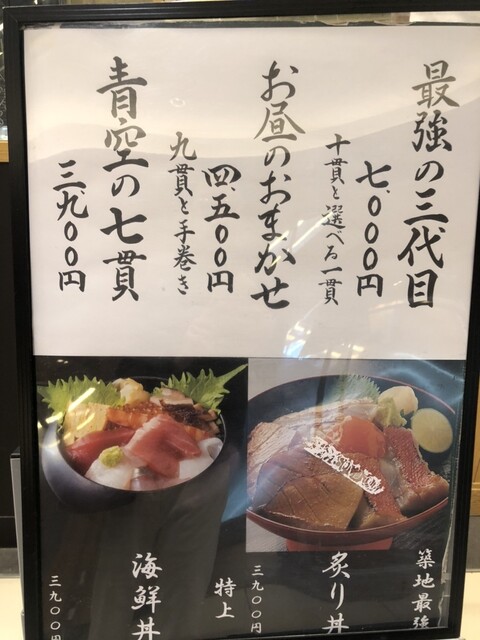 最強の三代目
七、〇〇〇円
十貫と選べる一貫
お昼のおまかせ
四、五〇〇円
九貫と手巻き
青空の七貫
三、九〇〇円
築地最強
炙り丼
三九〇〇円
特上
海鮮丼
三九〇〇円